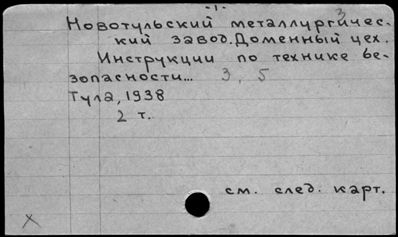 -1-
3
Новотульский металлургичес-
кий завод. Доменный цех.
Инструкции по технике бе-
зопасности... 3, 5
Тула, 1938
2 т.
см. след. карт.
X